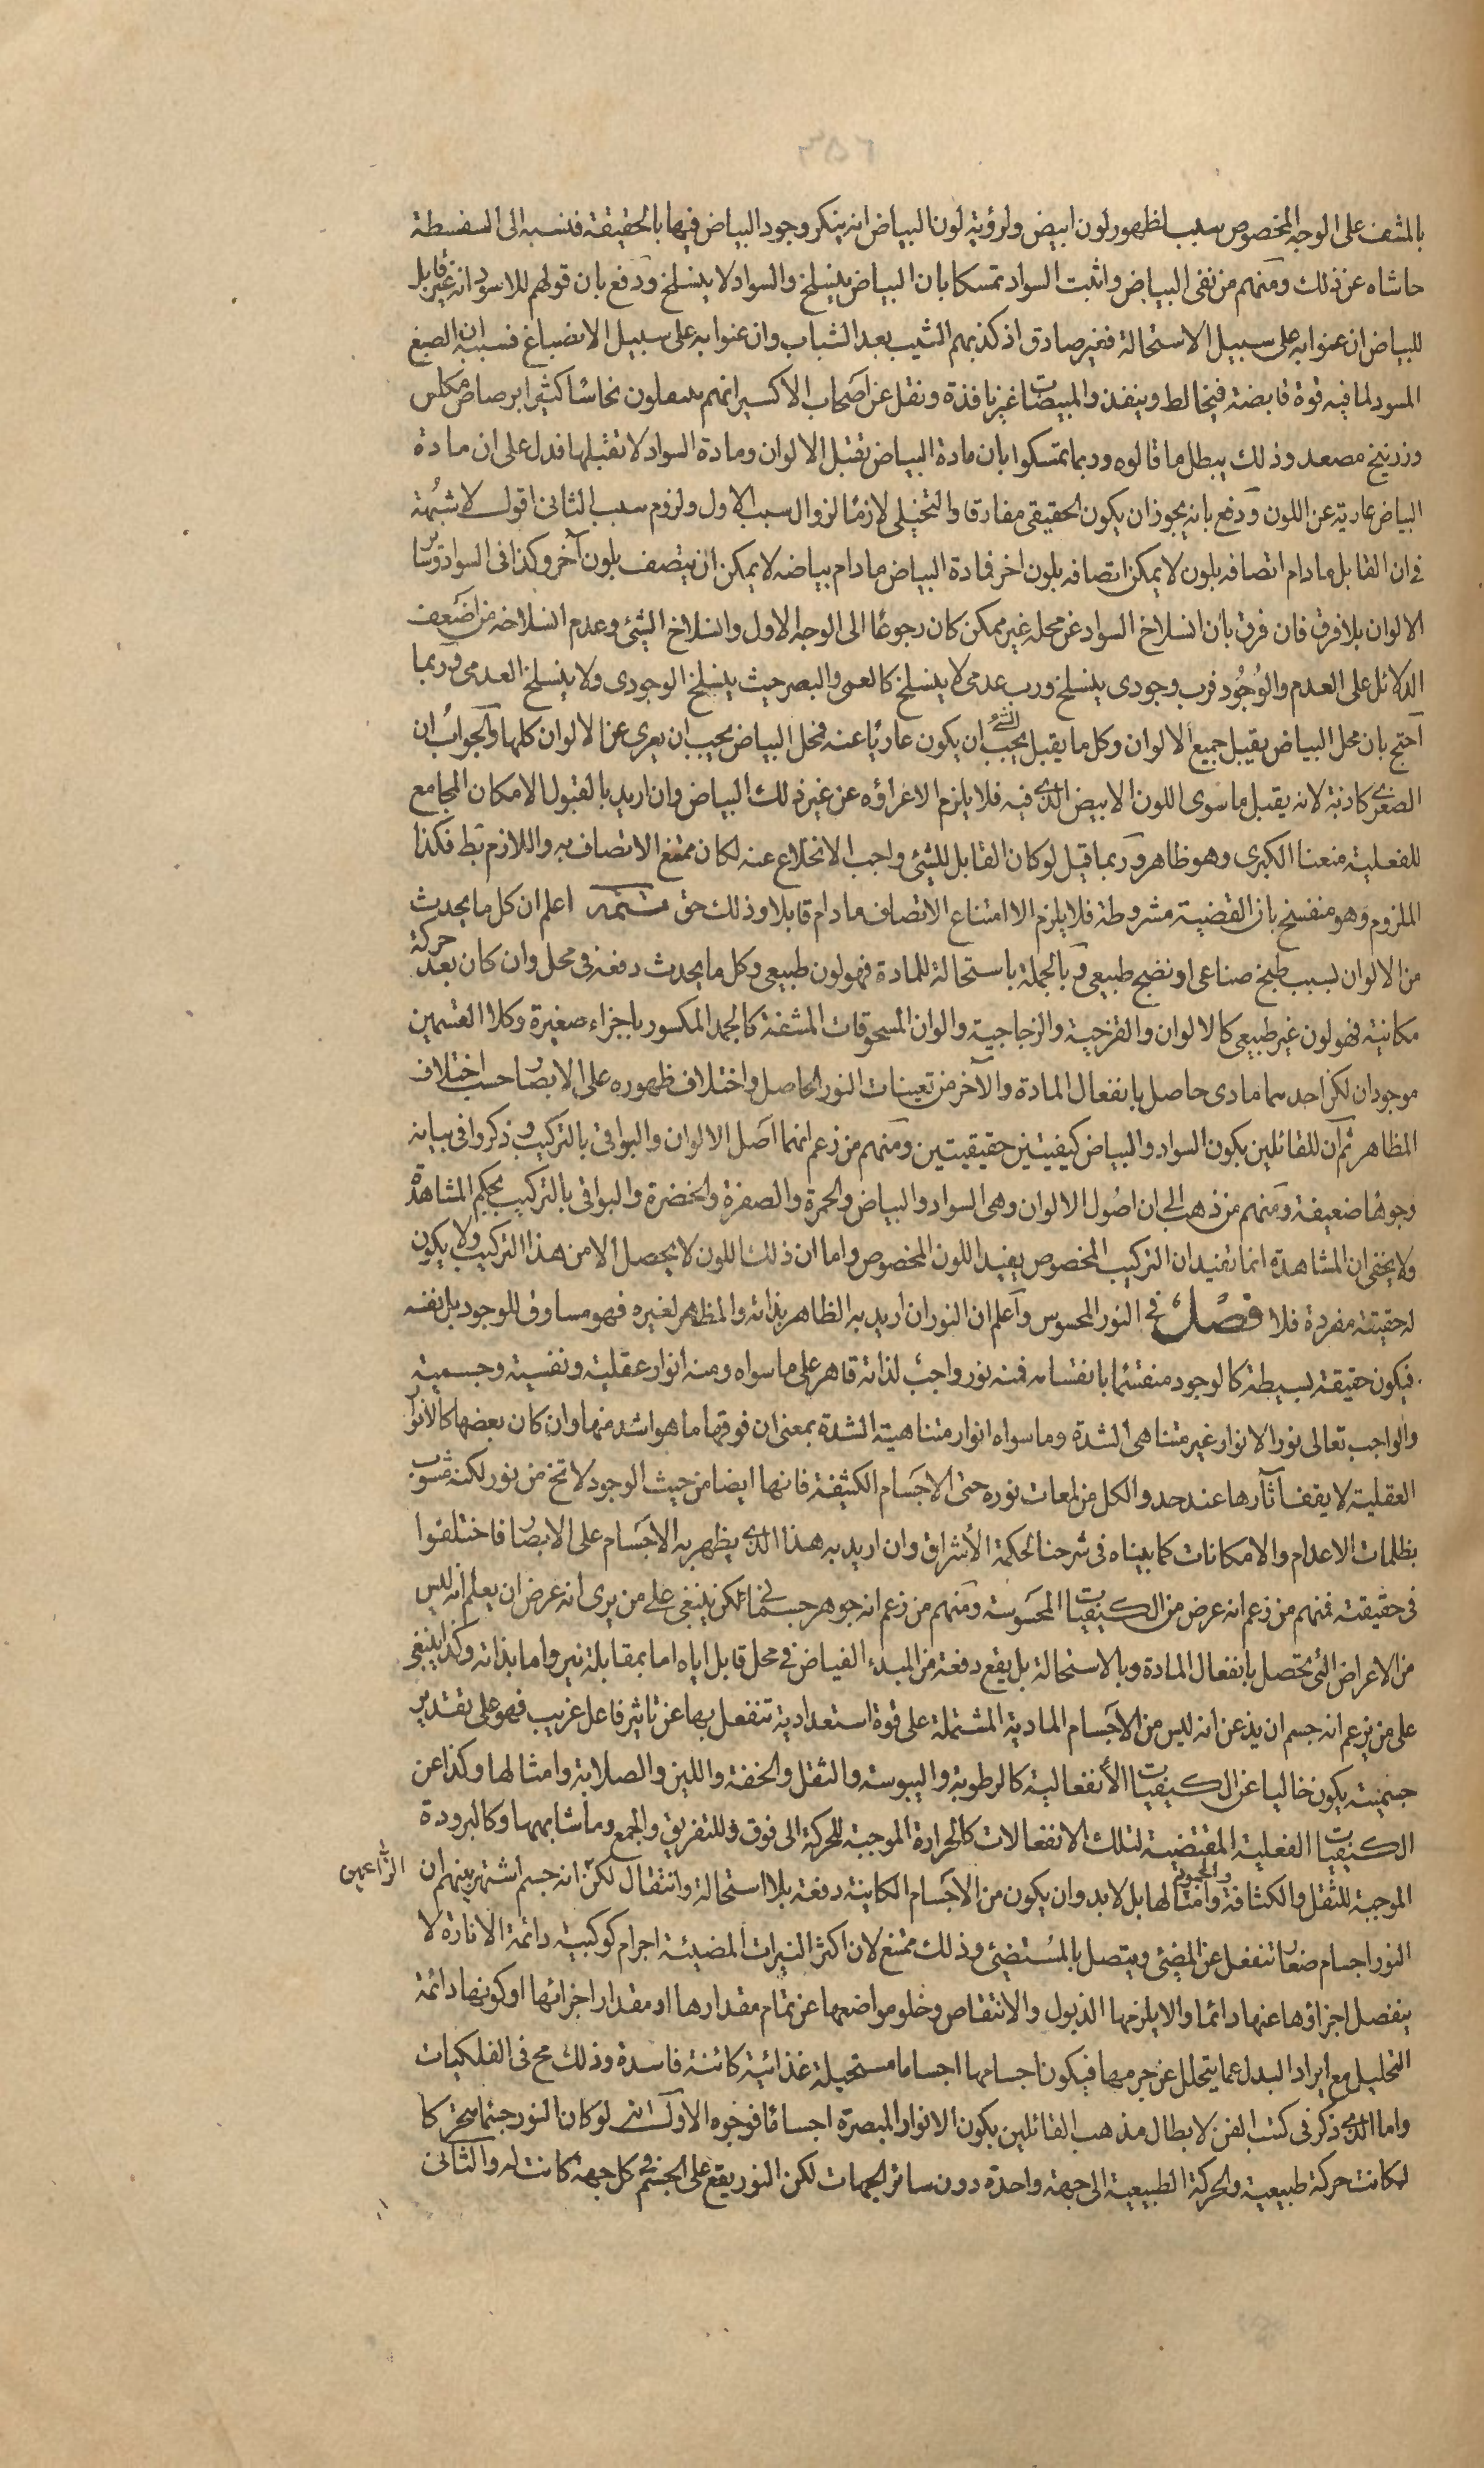 بالمشف على الوجه المخصوص سبب لظهور لون ابيض ولرؤية لون البياض انه ينكر وجود البياض فيها بالحقيقة فنسبه الى السفسطة
حاشاه عن ذلك ومنهم من نفى البياض واثبت السواد تمسكا بان البياض ينسلخ والسواد لا ينسلخ ودفع بان قولهم للاسود انه غير قابل
للبياض ان عنوا به على سبيل الاستحالة فغير صادق اذ كذبهم الشيب بعد الشباب وان عنوا به على سبيل الانصباغ فسببه ان الصبغ
المسود لما فيه قوة قابضة فيخالط وينفذ والمبيضات غير نافذة ونقل عن اصحاب الاكسير انهم يفعلون نحاسا كثيرا برصاص مكلس
وزرنيخ مصعد وذلك يبطل ما قالوه وربما تمسكوا بان مادة البياض تقبل الالوان ومادة السواد لا تقبلها فدل على ان مادة
البياض عارية عن اللون ودفع بانه يجوز ان يكون الحقيقى مفارقا والتخيلى لازما لزوال سبب الاول ولزوم سبب الثانى اقول لا شبهة
فى ان القابل ما دام اتصافه بلون لا يمكن اتصافه بلون اخر فمادة البياض ما دام بياضه لا يمكن ان يتصف بلون آخر وكذا فى السواد وسائر
الالوان بلا فرق فان فرق بان انسلاخ السواد عن محله غير ممكن كان رجوعا الى الوجه الاول وانسلاخ الشئ وعدم انسلاخه من اضعف
الدلائل على العدم والوجود فرب وجودى ينسلخ ورب عدمى لا ينسلخ كالعمى والبصر حيث ينسلخ الوجودى ولا ينسلخ العدمى وربما
احتج بان محل البياض يقبل جميع الالوان وكل ما يقبل الشئ يجب ان يكون عاريا عنه فمحل البياض يجب ان يعرى عن الالوان كلها والجواب ان
الصغرى كاذبة لانه يقبل ما سوى اللون الابيض الذى فيه فلا يلزم الا عراؤه عن غير ذلك البياض وان اريد بالقبول الامكان المجامع
للفعلية منعنا الكبرى وهو ظاهر وربما قيل لو كان القابل للشئ واجب الانخلاع عنه لكان ممتنع الاتصاف به واللازم بط فكذا
الملزوم وهو منفسخ بان القضية مشروطة فلا يلزم الا امتناع الاتصاف ما دام قابلا وذلك حق تتمة اعلم ان كل ما يحدث
من الالوان بسبب طبخ صناعى او نضج طبيعى وبالجملة باستحالة للمادة فهو لون طبيعى وكل ما يحدث دفعة فى محل وان كان بعد حركة
مكانية فهو لون غير طبيعى كالالوان والقزحية والزجاجية والوان المسحوقات المشفة كالجمد المكسور باجزاء صغيرة وكلا القسمين
موجودان لكن احدهما مادى حاصل بانفعال المادة والآخر من تعينات النور الحاصل واختلاف ظهوره على الابصار حسب اختلاف
المظاهر ثم ان للقائلين بكون السواد والبياض كيفيتين حقيقيتين ومنهم من زعم انهما اصل الالوان والبواقى بالتركيب وذكروا فى بيانه
وجوها ضعيفة ومنهم من ذهب الى ان اصول الالوان وهى السواد والبياض والحمرة والصفرة والخضرة والبواقى بالتركيب بحكم المشاهدة
ولا يخفى ان المشاهدة انما تفيد ان التركيب المخصوص يفيد اللون المخصوص واما ان ذلك اللون لا يحصل الا من هذا التركيب ولا يكون
له حقيقة مفردة فلا فصل فى النور المحسوس واعلم ان النور ان اريد به الظاهر بذاته والمظهر لغيره فهو مساوق للوجود بل نفسه
فيكون حقيقة بسيطة كالوجود منقسما بانقسامه فمنه نور واجب لذاته قاهر على ما سواه ومنه انوار عقلية ونفسية وجسمية
والواجب تعالى نور الانوار غير متناهى الشدة وما سواه انوار متناهية الشدة بمعنى ان فوقها ما هو اشد منها وان كان بعضها كالانوار
العقلية لا يقف آثارها عند حد والكل من لمعات نوره حتى الاجسام الكثيفة فانها ايضا من حيث الوجود لا تخ من نور لكنه مشوب
بظلمات الاعدام والامكانات كما بيناه فى شرحنا لحكمة الاشراق وان اريد به هذا الذى يظهر به الاجسام على الابصار فاختلفوا
فى حقيقته فمنهم من زعم انه عرض من الكيفيات المحسوسة ومنهم من زعم انه جوهر جسمانى لكن ينبغى على من يرى انه عرض ان يعلم انه ليس
من الاعراض التى تحصل بانفعال المادة وبالاستحالة بل يقع دفعة من المبدء الفياض فى محل قابل اياه اما بمقابلة نير واما بذاته وكذا ينبغى
على من يزعم انه جسم ان يذعن انه ليس من الاجسام المادية المشتملة على قوة استعدادية تنفعل بها عن تاثير فاعل غريب فهو على تقدير
جسميته يكون خاليا عن الكيفيات الانفعالية كالرطوبة واليبوسة والثقل والخفة واللين والصلابة وامثالها وكذا عن
الكيفيات الفعلية المقتضية لتلك الانفعالات كالحرارة الموجبة للحركة الى فوق وللتفريق والجمع وما شابهها وكالبرودة
الموجبة للثقل والكثافة والجمود وامثالها بل لا بد وان يكون من الاجسام الكاينة دفعة بلا استحالة وانتقال لكن الزاعمين انه جسم اشتهر بينهم ان
النور اجسام صغار تنفصل عن المضئ ويتصل بالمستضئ وذلك ممتنع لان اكثر النيرات المضيئة اجرام كوكبية دائمة الانارة لا
ينفصل اجزاؤها عنها دائما والا يلزمها الذبول والانتقاص وخلو مواضعها عن تمام مقدارها او مقدار اجزائها او كونها دائمة
التحليل مع ايراد البدل عما يتحلل عن جرمها فيكون اجسامها اجساما مستحيلة غذائية كائنة فاسدة وذلك مح فى الفلكيات
واما الذى ذكر فى كتب الفن لابطال مذهب القائلين بكون الانوار المبصرة اجساما فوجوه الاول انه لو كان النور جسما متحركا
لكانت حركة طبيعية والحركة الطبيعية الى جهة واحدة دون سائر الجهات لكن النور يقع على الجسم فى كل جهة كانت له والثانى